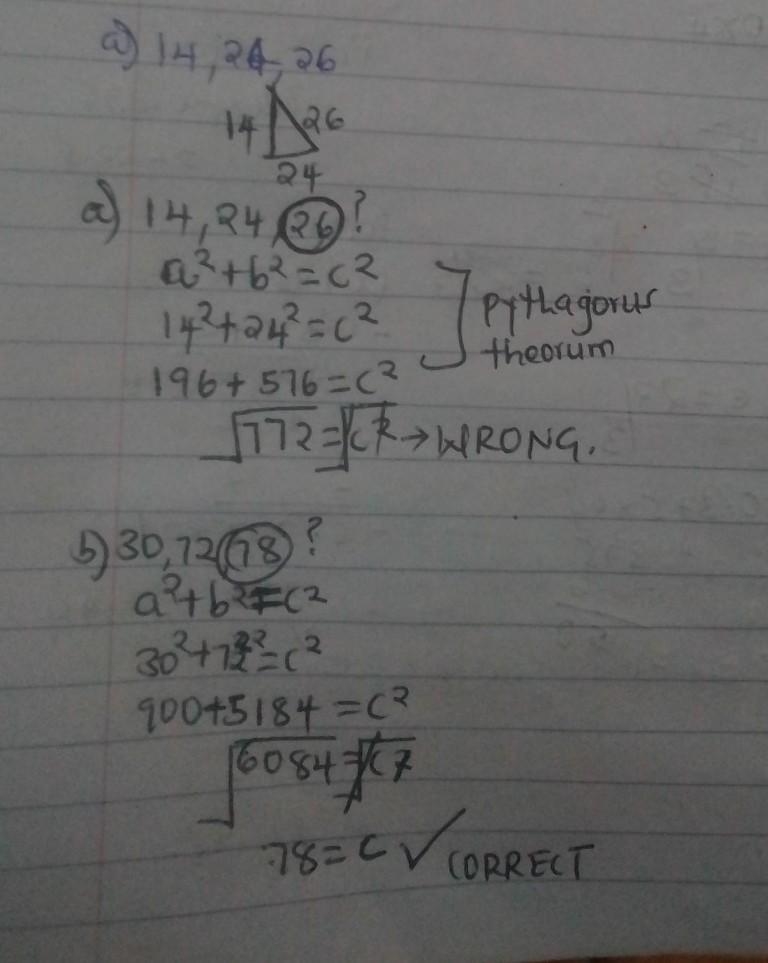 a) 14, 24, 26
14 26
24
a) 14, 24, 26 ?
a² + b² = c²
14² + 24² = c²
196 + 576 = c²
pythagorus
theorum
√772 = √c² → WRONG.
b) 30, 72, 78 ?
a² + b² = c²
30² + 72² = c²
900 + 5184 = c²
√6084 = √c²
78 = c ✓ CORRECT